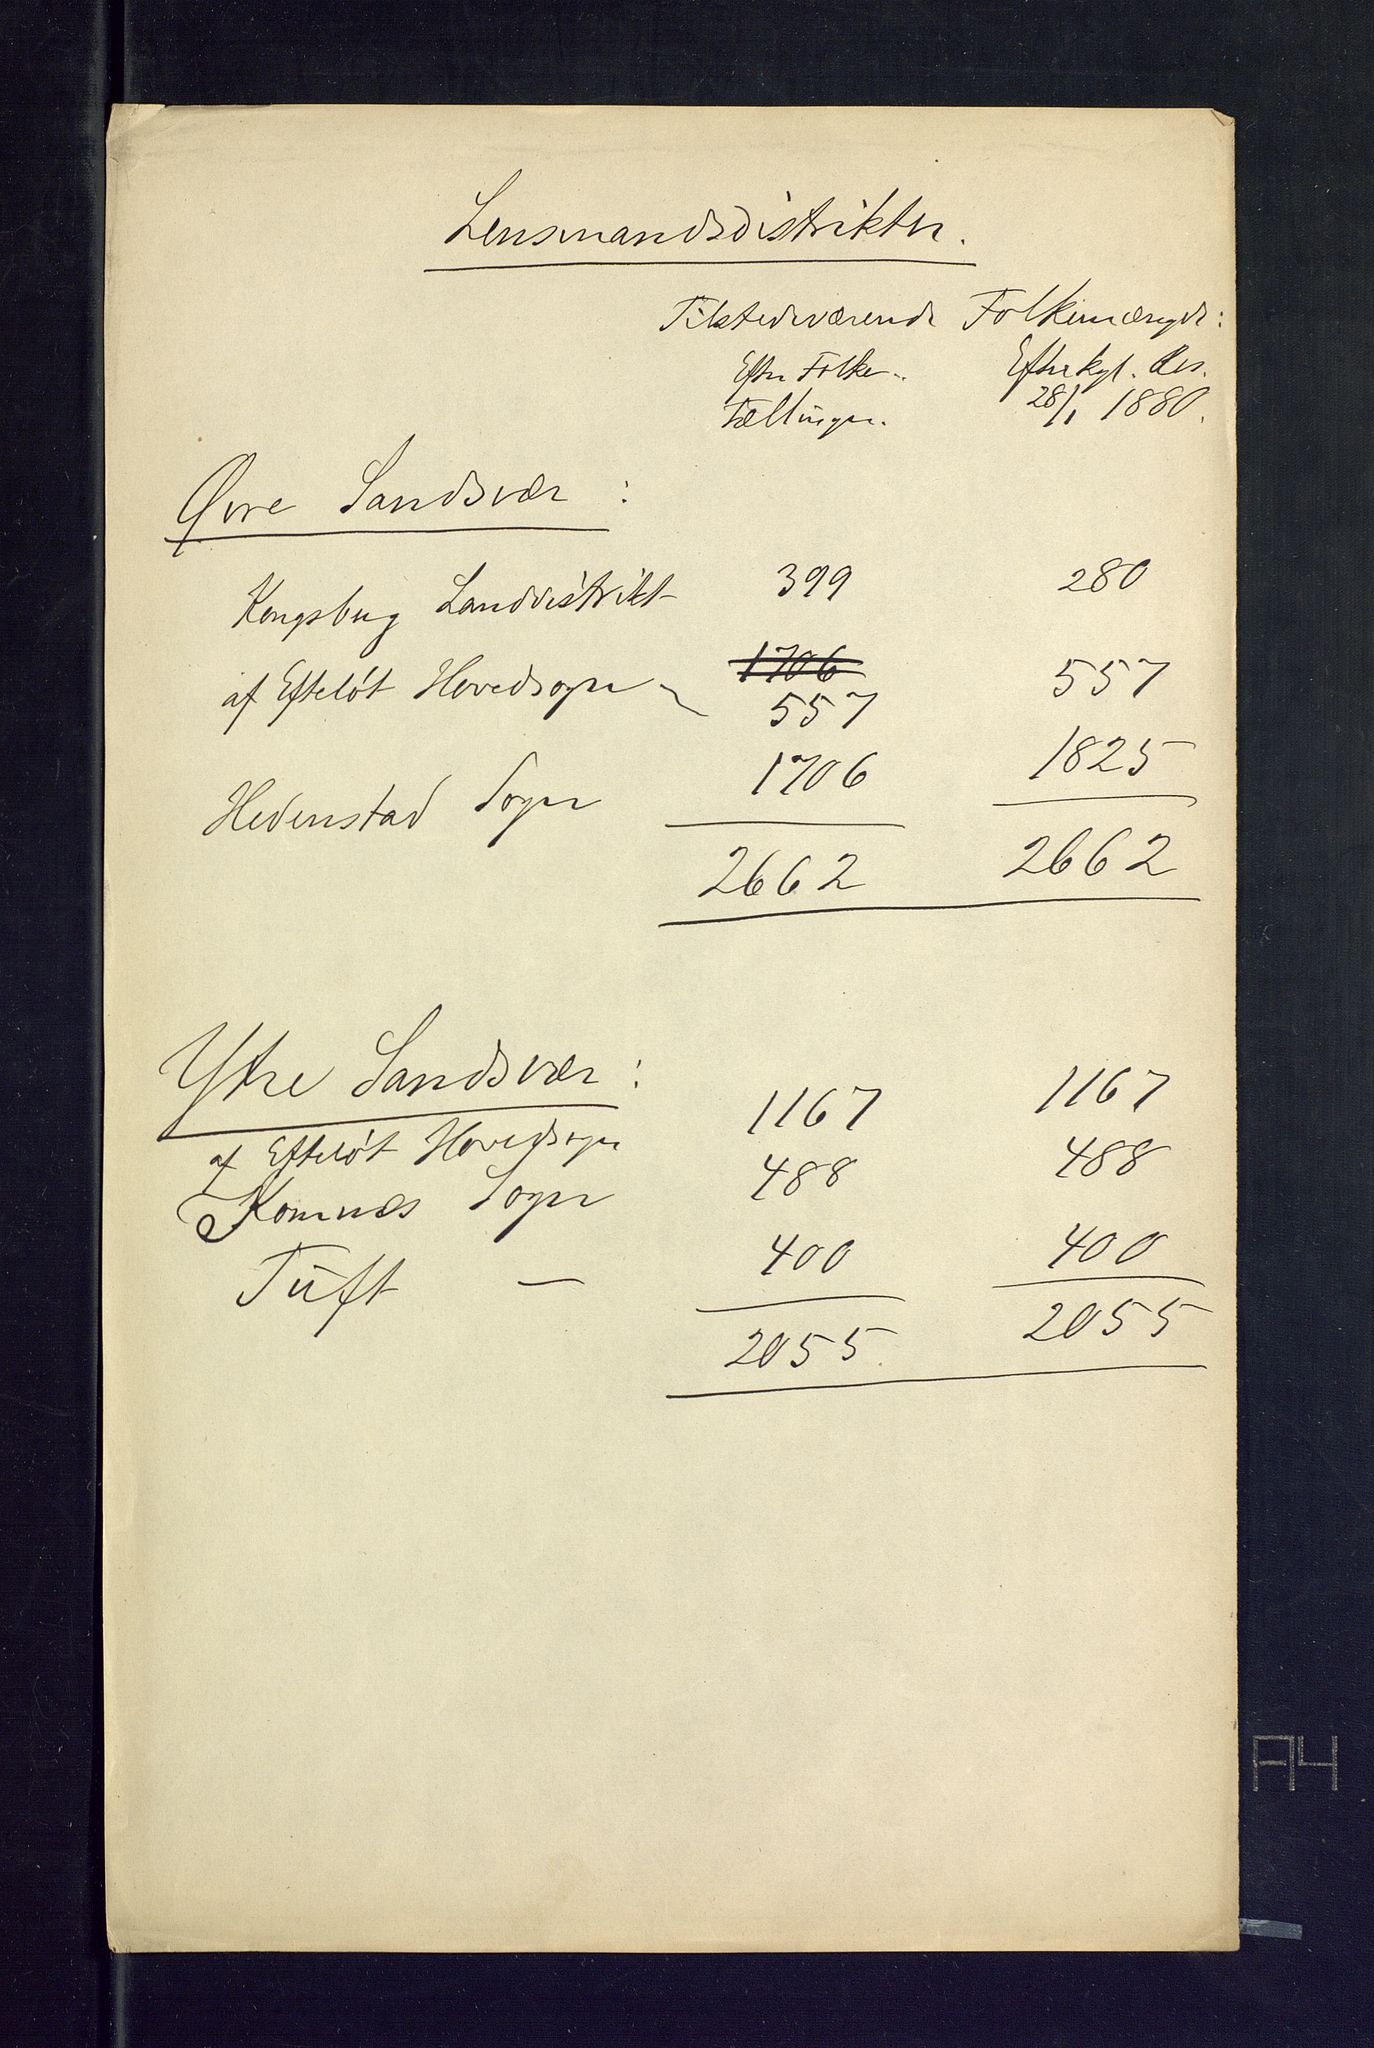 Lensmandsdistrikter.
Tilstedeværende Folkemængde:
Efter Folke- Efter kgl. Res.
tællingen. 28/1 1880.
Øvre Sandsvær:
Kongsberg Landdistrikt 399 280
af Efteløt Hovedsogn 1706 557
557
Hedenstad Sogn 1706 1825
2662 2662
Ytre Sandsvær:
af Efteløt Hovedsogn 1167 1167
Komnæs Sogn 488 488
Tuft — 400 400
2055 2055
A4